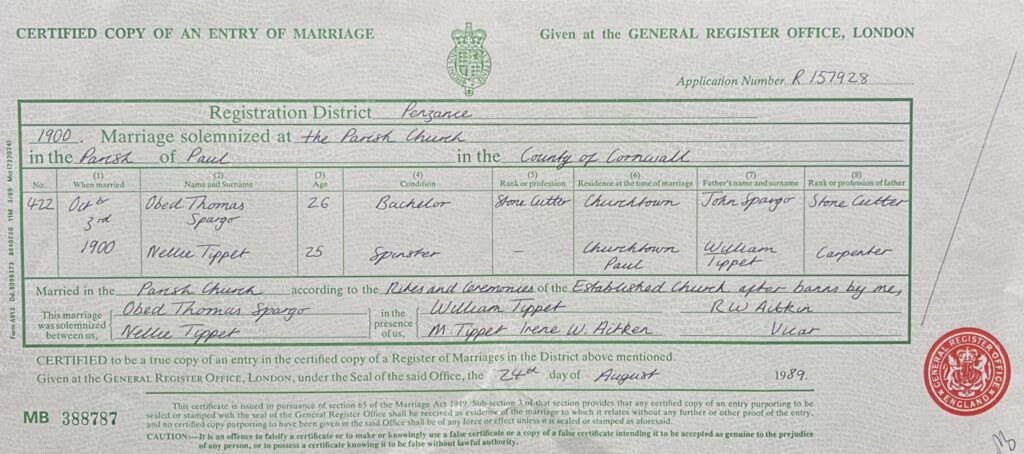 CERTIFIED COPY OF AN ENTRY OF MARRIAGE
Given at the GENERAL REGISTER OFFICE, LONDON
Application Number R 157928
Registration District Penzance
1900. Marriage solemnized at the Parish Church
in the Parish of Paul in the County of Cornwall
(1) (2) (3) (4) (5) (6) (7) (8)
No. When married Name and Surname Age Condition Rank or profession Residence at the time of marriage Father's name and surname Rank or profession of father
422 Octbr 3rd 1900 Obed Thomas Spargo 26 Bachelor Stone Cutter Churchtown John Spargo Stone Cutter
Nellie Tippet 25 Spinster – Churchtown Paul William Tippet Carpenter
Married in the Parish Church according to the Rites and Ceremonies of the Established Church after banns by me,
This marriage was solemnized between us, Obed Thomas Spargo Nellie Tippet in the presence of us, William Tippet M. Tippet Irene W. Aitken R W Aitkin Vicar
CERTIFIED to be a true copy of an entry in the certified copy of a Register of Marriages in the District above mentioned.
Given at the GENERAL REGISTER OFFICE, LONDON, under the Seal of the said Office, the 24th day of August 1989.
MB 388787
This certificate is issued in pursuance of section 65 of the Marriage Act 1949. Sub-section 3 of that section provides that any certified copy of an entry purporting to be
sealed or stamped with the seal of the General Register Office shall be received as evidence of the marriage to which it relates without any further or other proof of the entry,
and no certified copy purporting to have been given in the said Office shall be of any force or effect unless it is sealed or stamped as aforesaid.
CAUTION:—It is an offence to falsify a certificate or to make or knowingly use a false certificate or a copy of a false certificate intending it to be accepted as genuine to the prejudice
of any person, or to possess a certificate knowing it to be false without lawful authority.
GENERAL REGISTER OFFICE
ENGLAND